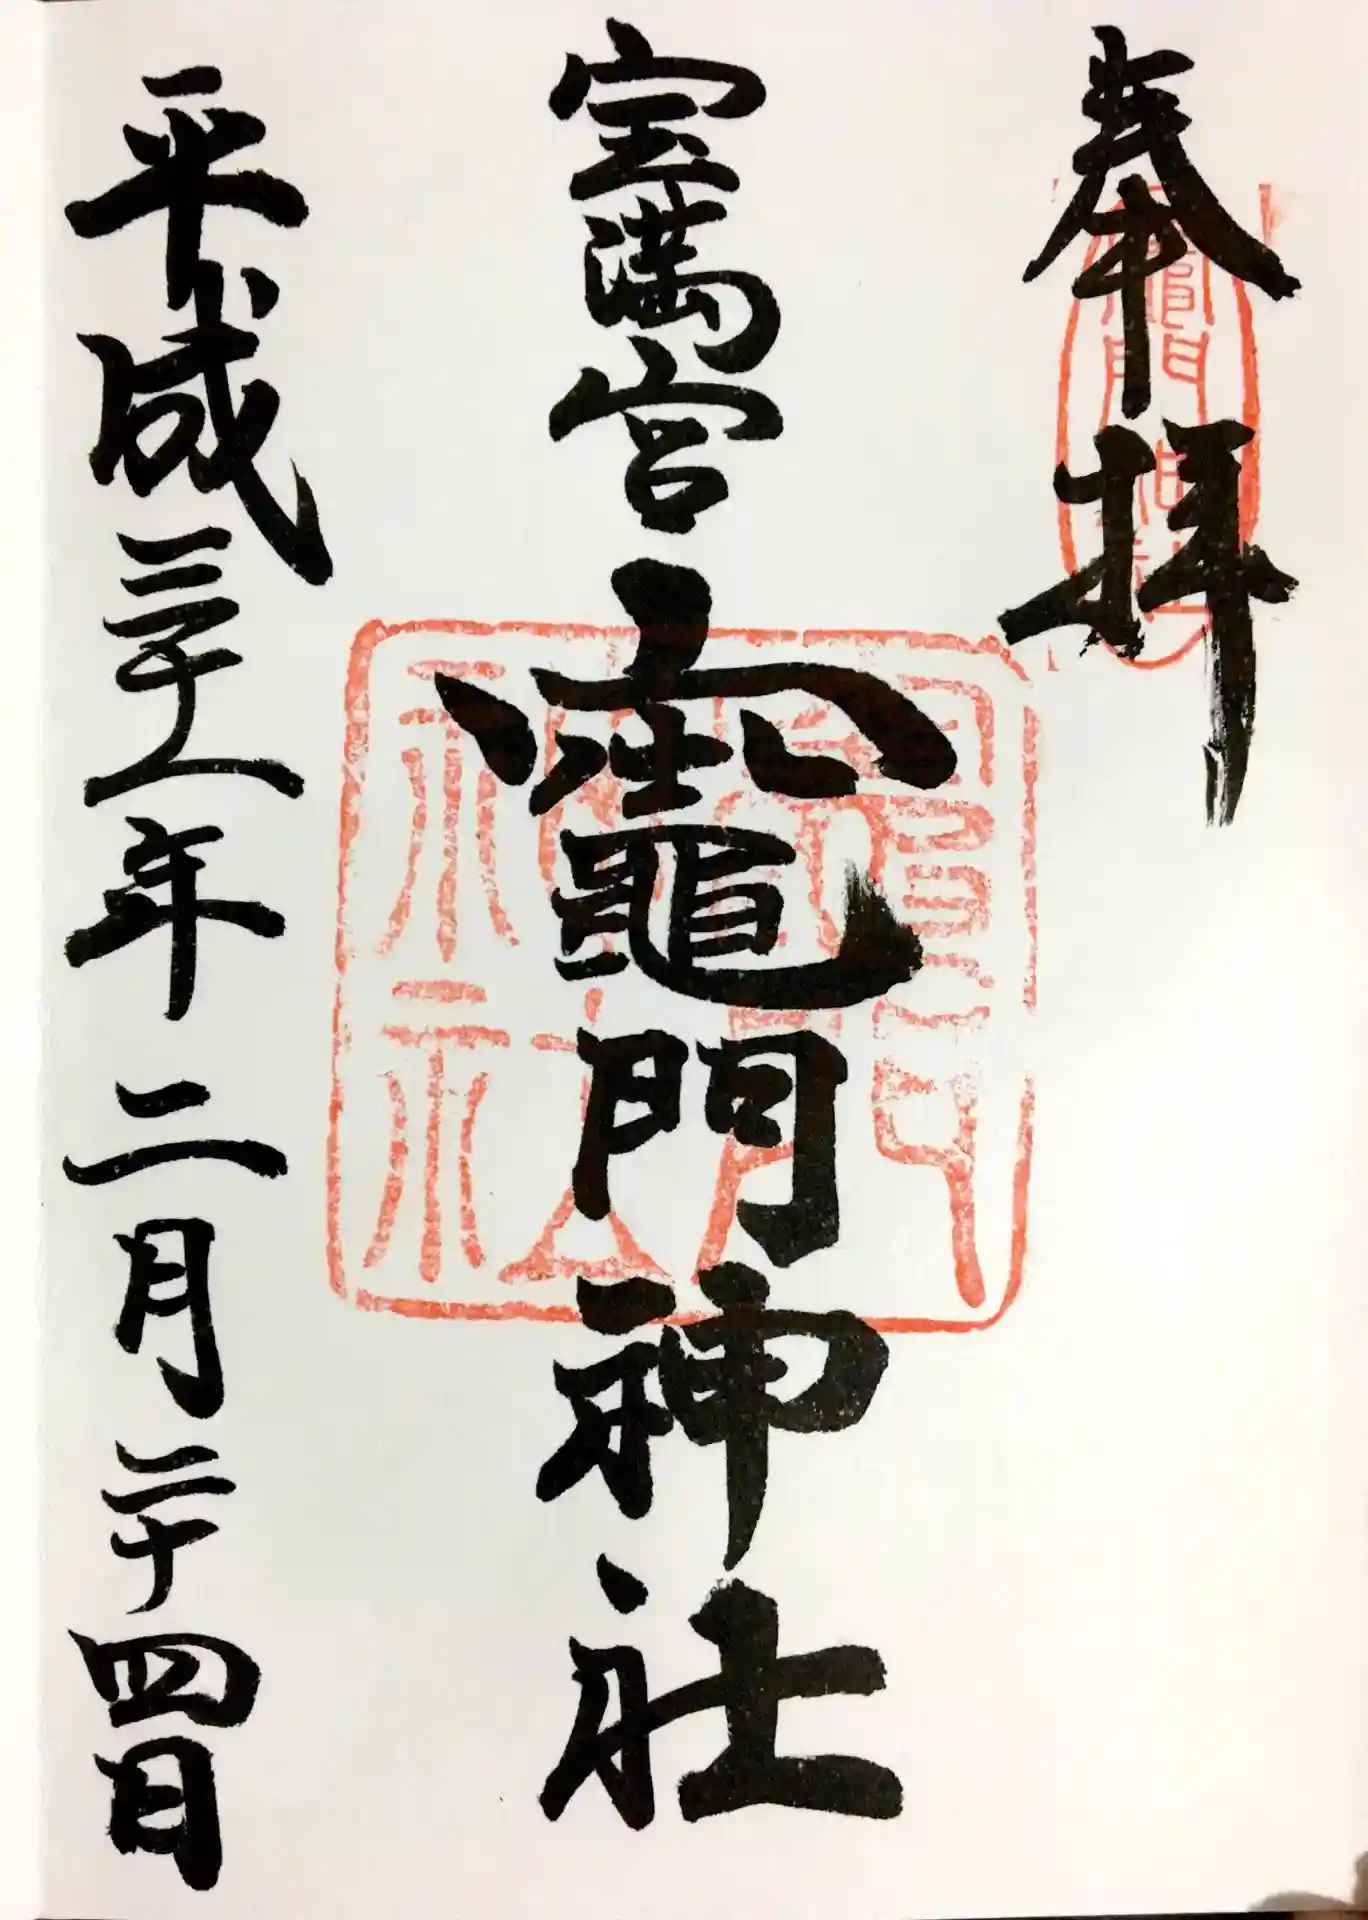 奉拝
宝満宮竈門神社
平成三十一年二月二十四日